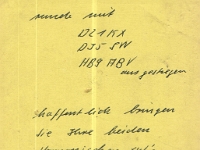 runde mit
DL1KX
DJ5 SW
HB9 ABV
ausgestiegen
hoffentlich bringen
die Ihre beiden